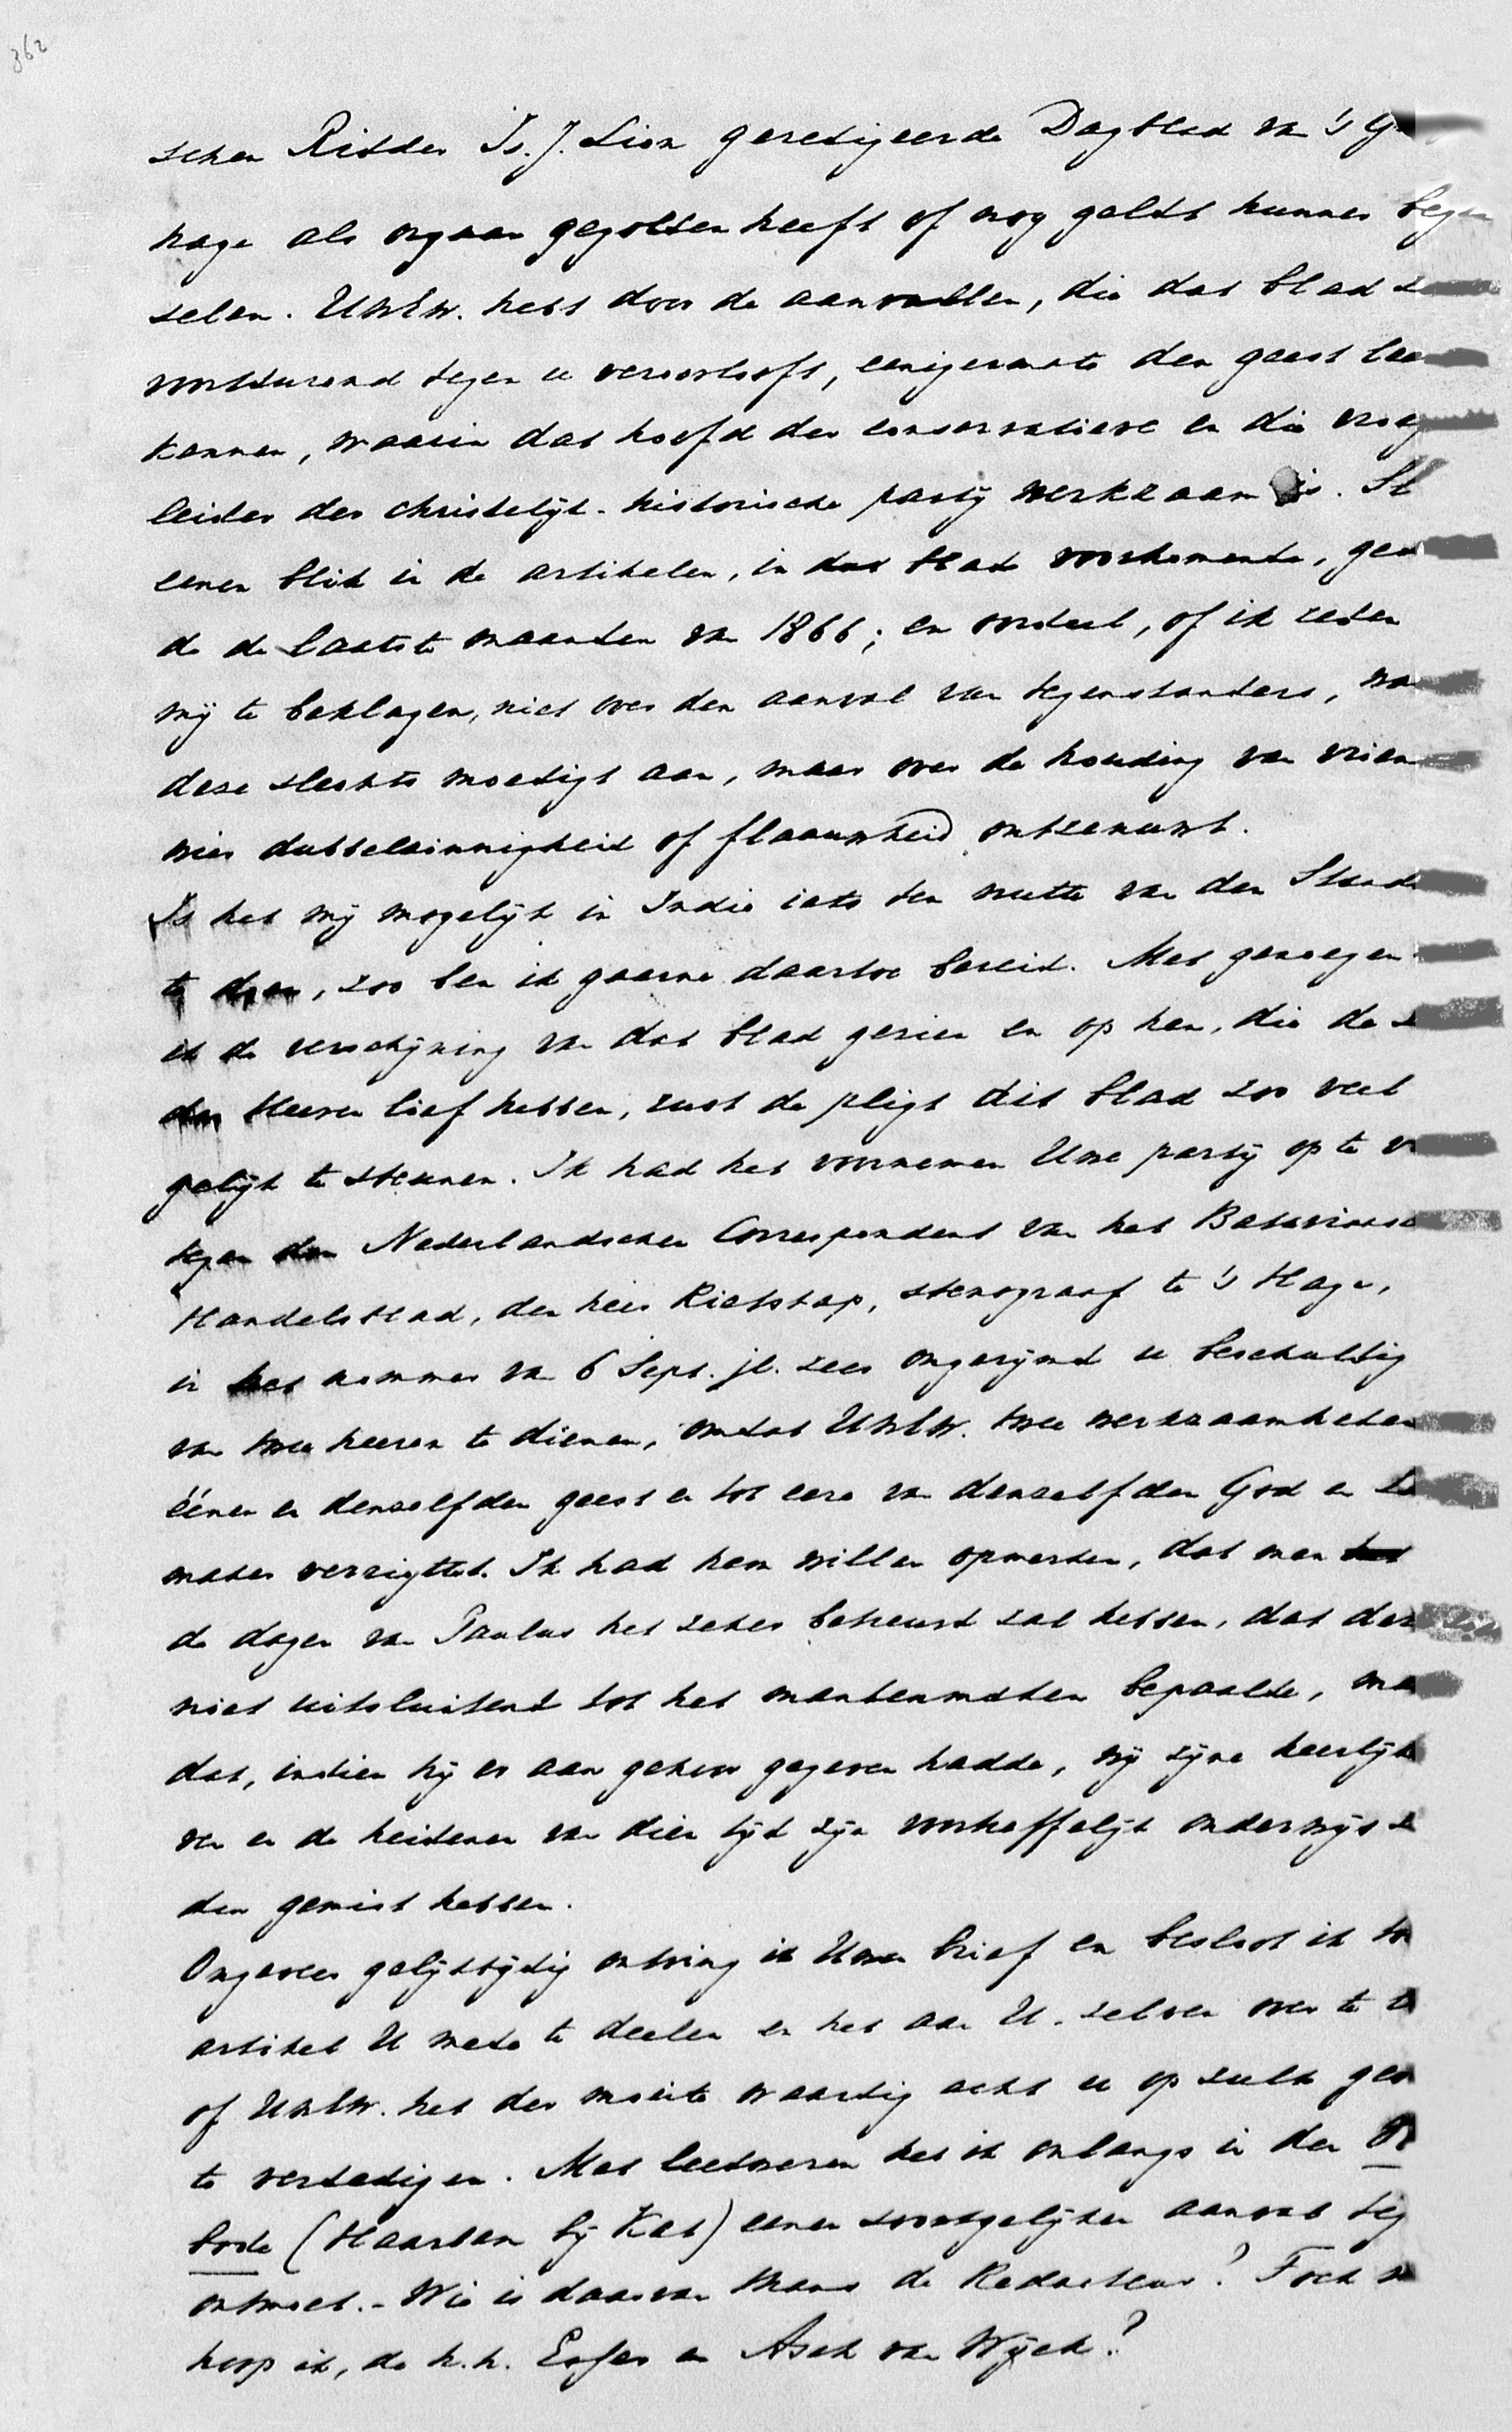 362
schen Ridder Is. J. Lion geredigeerde Dagblad van 's G
hage als orgaan gegolden heeft of nog geldt hunner begin
selen. UWEw. hebt door de aanvallen, die dat blad
voortdurend tegen u veroorlooft, eenigermate den geest lee
kennen, waarin dat hoofd der conservatieve en die vroeg
leider der christelijk-historische partij werkzaam is. Sl
eenen blik in de artikelen, in dat blad voorkomende, ged
de de laatste maanden van 1866; en oordeel, of ik reden
mij te beklagen, niet over den aanval van tegenstanders, wa
deze slechts moedigt aan, maar over de houding van vrien
wier dubbelzinnigheid of flaauwheid ontzenuwt.
Is het mij mogelijk in Indie iets ten nutte van den Stand
te doen, zoo ben ik gaarne daartoe bereid. Met genoegen
ik de verschijning van dat blad gezien en op hen, die de
des Heeren lief hebben, rust de pligt dit blad zoo veel
gelijk te steunen. Ik had het voornemen Uwe partij op te v
tegen den Nederlandschen Correspondent van het Bataviaasc
Handelsblad, den heer Rietstap, stenograaf te 's Hage,
in het nommer van 6 Sept. jl. zeer ongerijmd u beschuldig
van twee heeren te dienen, omdat UWEw. twee werkzaamheden
éénen en denzelfden geest en tot eere van denzelfden God en
maker verrigttet. Ik had hem willen opmerken, dat men
de dagen van Paulus het zeker betreurd zal hebben, dat deze
niet uitsluitend tot het tentenmaken bepaalde, ma
dat, indien hij er aan gehoor gegeven hadde, wij zijne heerlijk
ven en de heidenen van dien tijd zijn voortreffelijk onderwijs z
den gemist hebben.
Ongeveer gelijktijdig ontving ik Uwen brief en besloot ik
artikel U mede te deelen en het aan U. zelven over te
of UWEw. het der moeite waardig acht u op zulk
te verdedigen. Met leedwezen heb ik onlangs in den
bode (Haarlem bij Kat) eenen soortgelijken aanval teg
ontmoet. - Wie is daarvan thans de Redacteur? Toch
hoop ik, de h.h. Esser en Asch van Wijck?